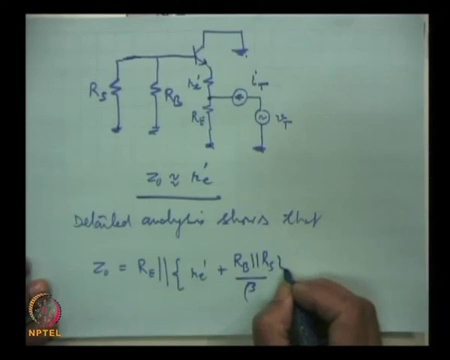 R_S
R_B
r_e'
i_T
R_E
v_T
z_o ≈ r_e'
Detailed analysis shows that
z_o = R_E || { r_e' + R_B||R_S / β }
NPTEL